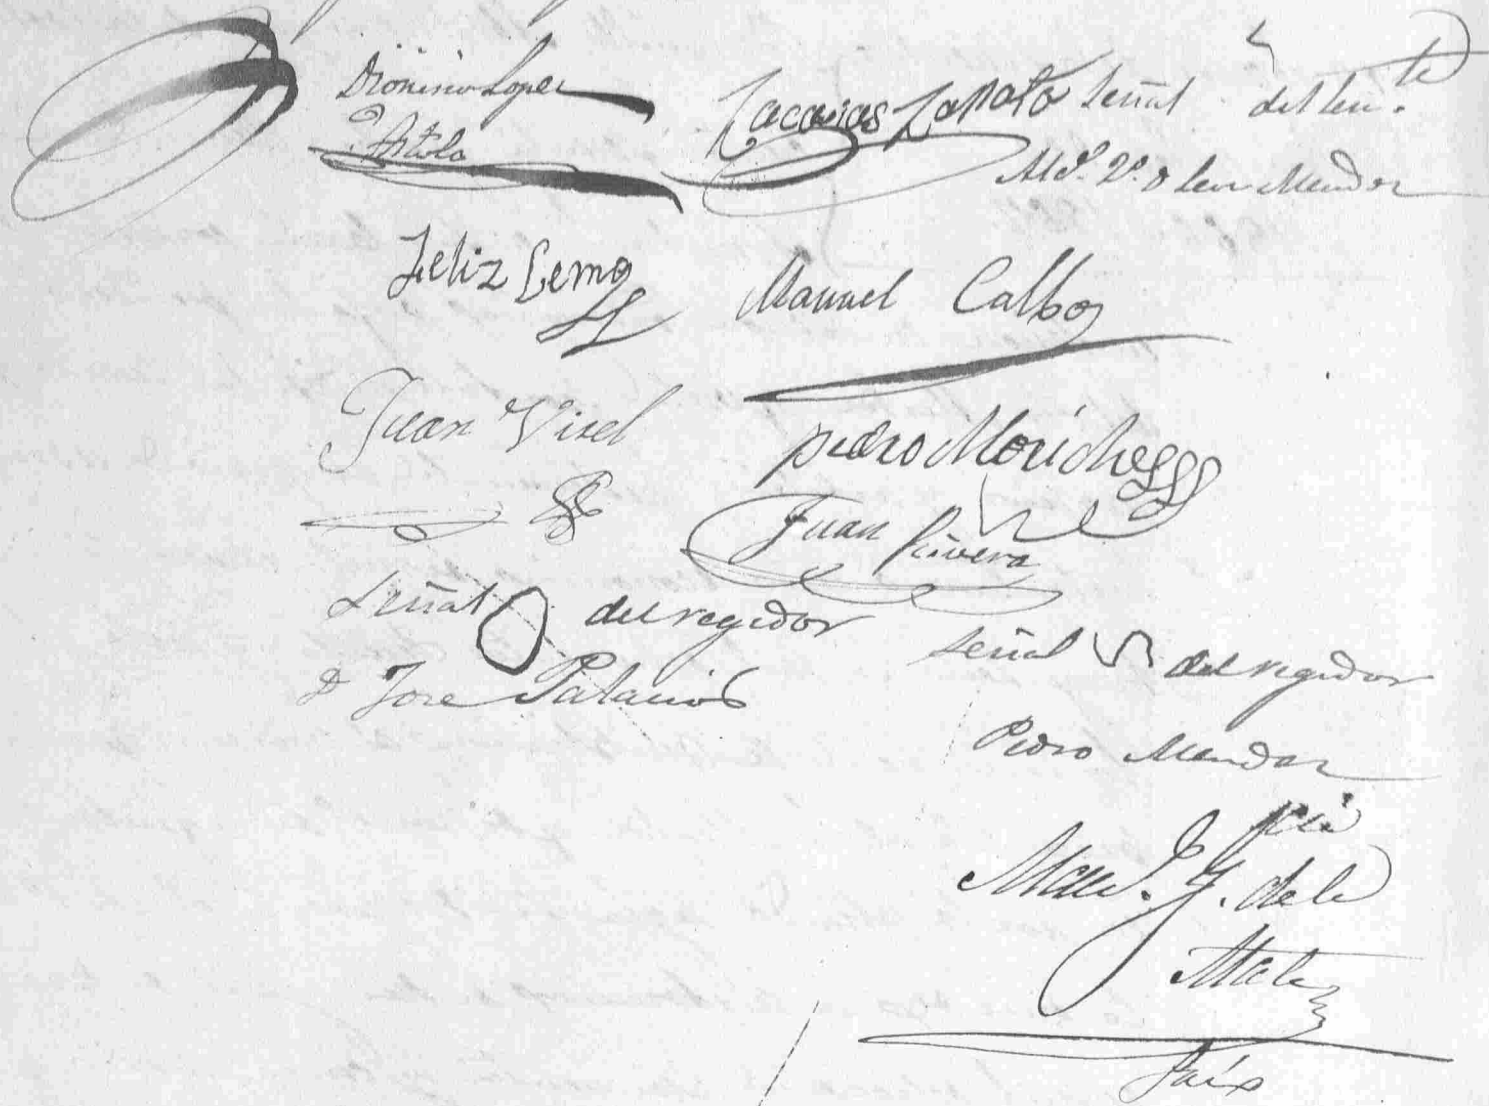 Dionisio Lopez
Artola
Zacarias Zapata
Señal del ten.te
Alc.e 2.o
Feliz Lemo
Manuel Calbo
Juan Visel
pedro Moriche
Juan Rivera
Señal del regidor
D Jose Palacios
Señal del regidor
Pedro Mendoz
Man.l J. de la
Mata